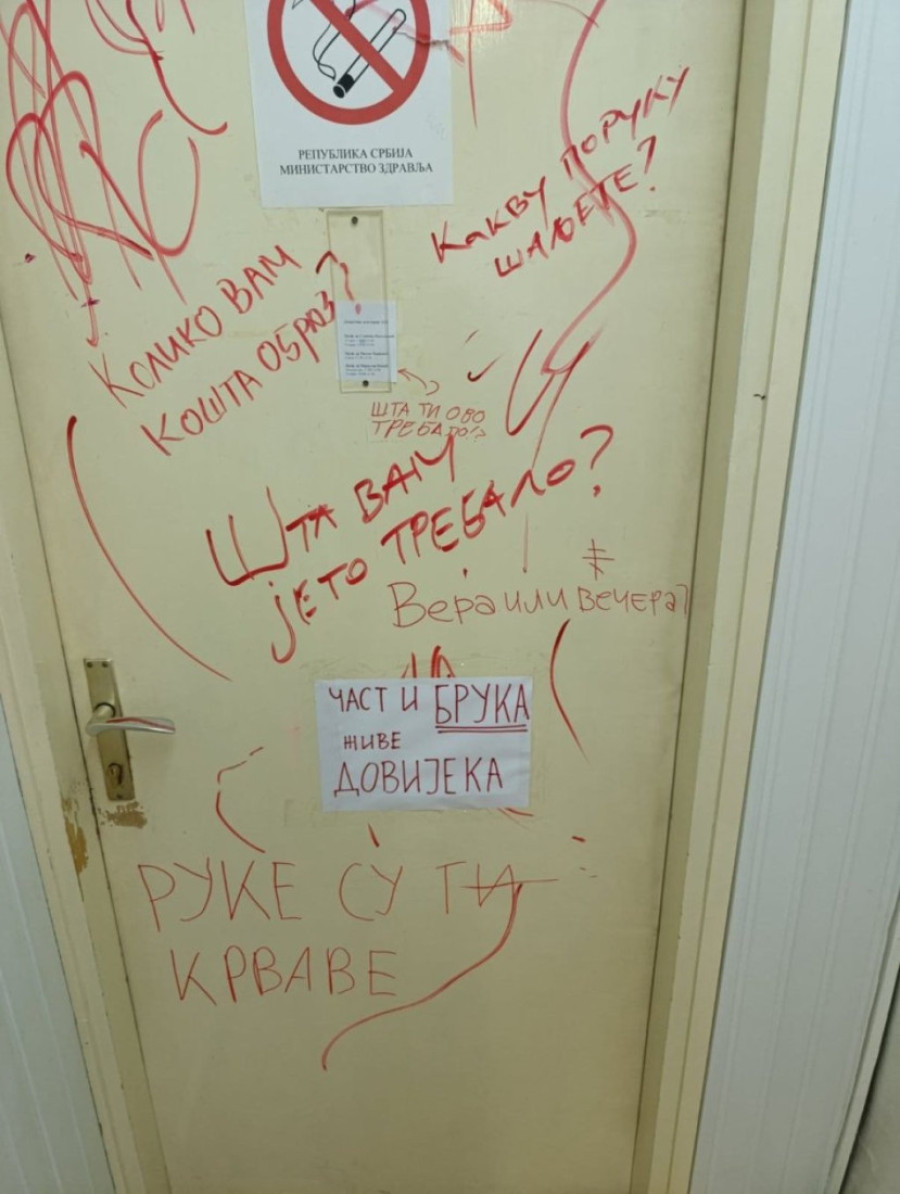 РЕПУБЛИКА СРБИЈА
МИНИСТАРСТВО ЗДРАВЉА
Какву поруку
шаљете?
Колико вам
кошта образ?
ШТА ТИ ОВО
ТРЕБАЛО!?
Шта вам
је то требало?
Вера или вечера?
ЧАСТ И БРУКА
ЖИВЕ
ДОВИЈЕКА
РУКЕ СУ ТИ
КРВАВЕ